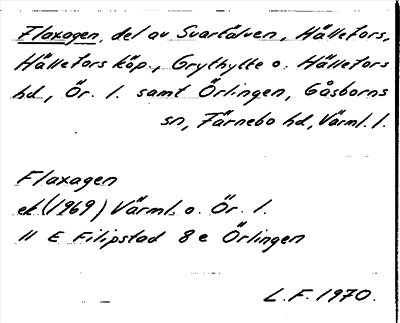 Flaxagen, del av Svartälven, Hällefors,
Hällefors köp., Grythytte o. Hällefors
hd., Ör. l. samt Örlingen, Gåsborns
sn, Färnebo hd, Värml. l.
Flaxagen
ek (1969) Värml. o. Ör. l.
11 E Filipstad 8 e Örlingen
L. F. 1970.